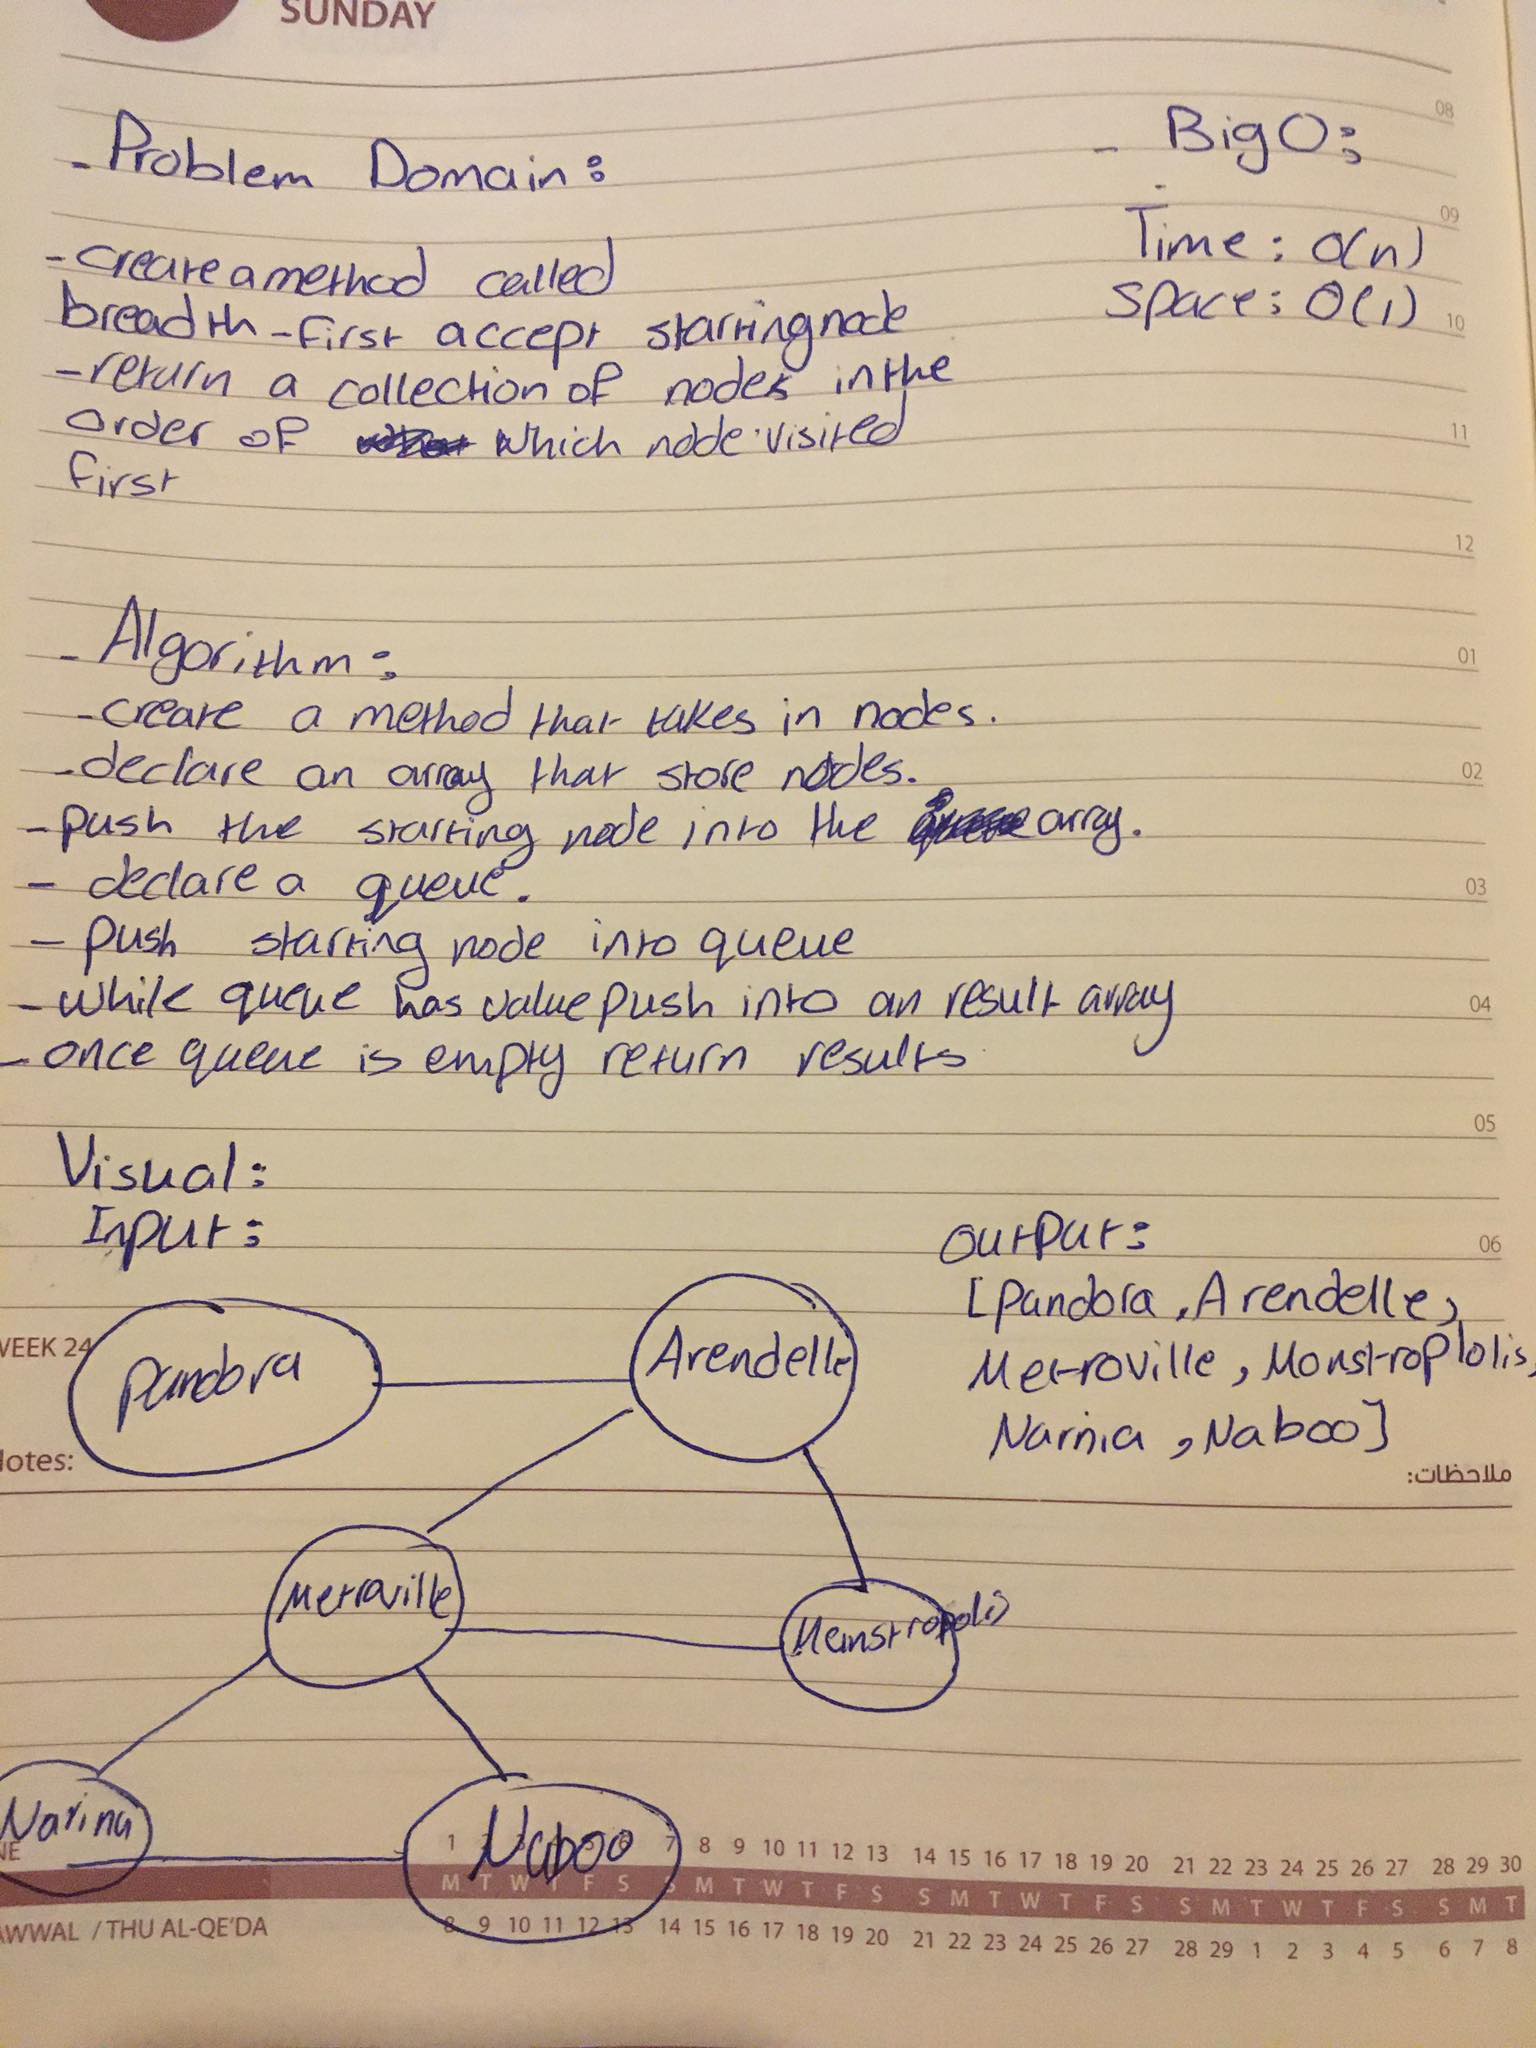 SUNDAY
- Problem Domain:
- create a method called
breadth-first accept starting node
- return a collection of nodes in the
order of which node visited
first
- Big O:
Time: O(n)
Space: O(1)
08
09
10
11
12
01
02
03
04
05
06
- Algorithm:
- create a method that takes in nodes.
- declare an array that store nodes.
- push the starting node into the array.
- declare a queue.
- push starting node into queue
- while queue has value push into an result array
- once queue is empty return results
Visual:
Input:
Output:
[Pandora, Arendelle,
Metroville, Monstroplolis,
Narnia, Naboo]
WEEK 24
Pandora
Arendelle
Notes:
ملاحظات:
Metroville
Monstropolis
Narina
Naboo
1 2 3 4 5 6 7 8 9 10 11 12 13 14 15 16 17 18 19 20 21 22 23 24 25 26 27 28 29 30
M T W T F S S M T W T F S S M T W T F S S M T W T F S S M T
AWWAL / THU AL-QE'DA
8 9 10 11 12 13 14 15 16 17 18 19 20 21 22 23 24 25 26 27 28 29 1 2 3 4 5 6 7 8